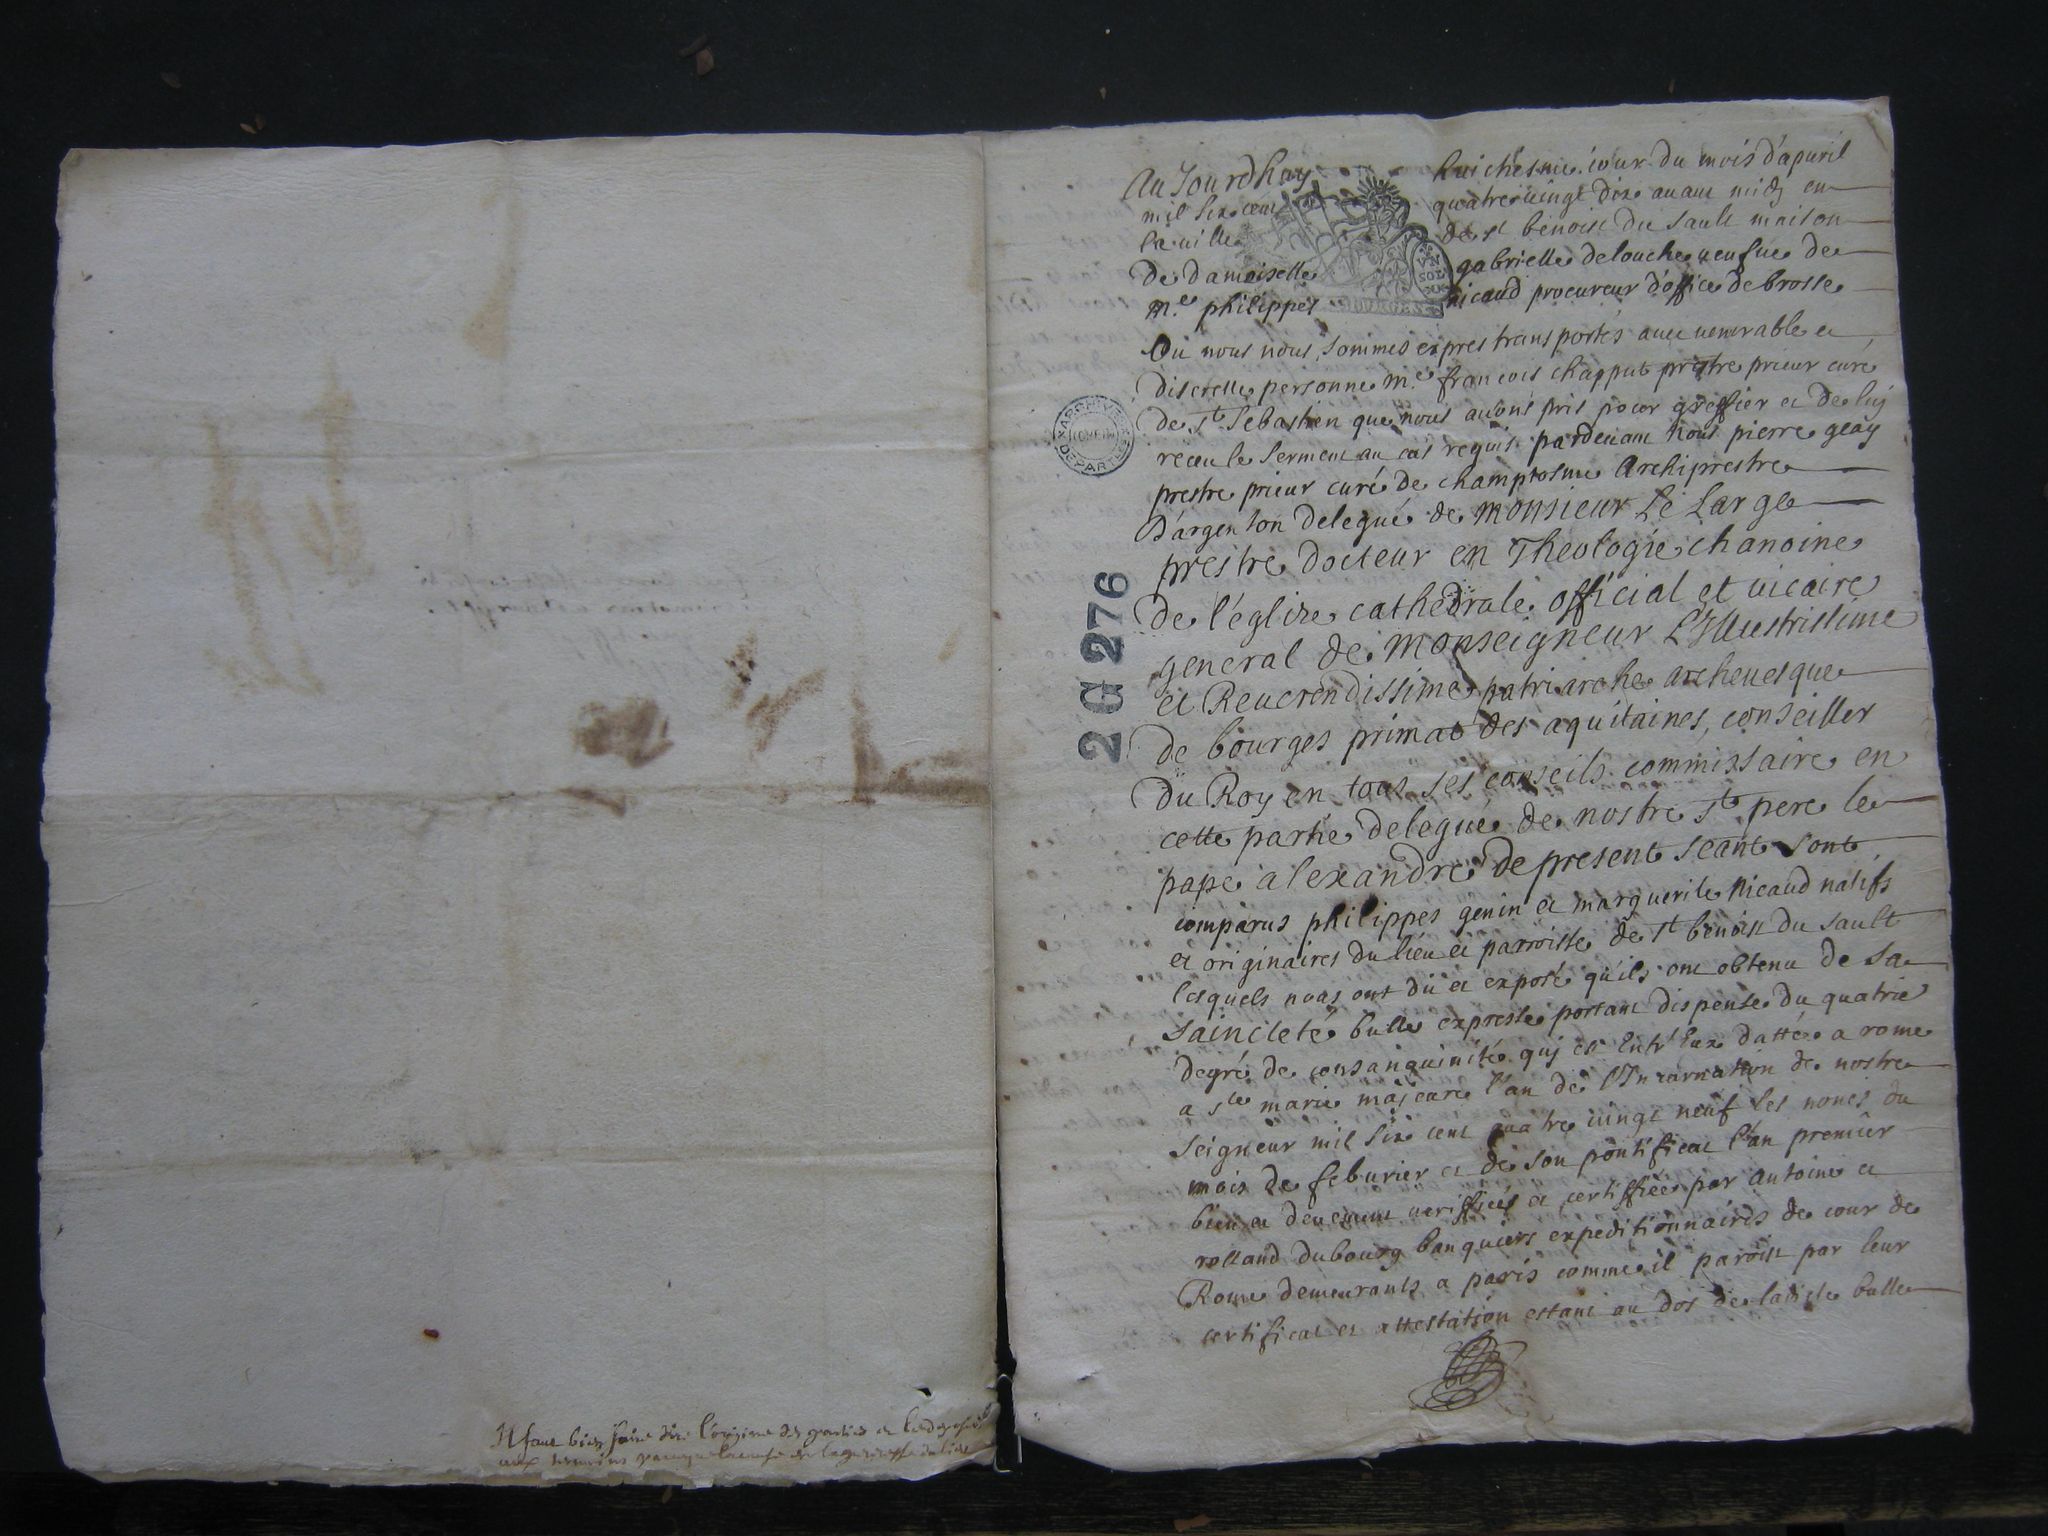 Il faut bien faire dire l'origine des parties et le degré
aux temoins
AuJourdhuy huictiesme jour du mois d'apuril
mil six cent quatre uingt dix auant midy en
la uille de st benoist du sault maison
de damoiselle gabrielle delouche ueufue de
me. philippes nicaud procureur d'office de brosse
Ou nous nous sommes expres transportés auec uenerable et
discrette personne me. francois chapput prestre prieur curé
de st Sebastien que nous auons pris pour greffier et de luy
receu le serment au cas requis. pardeuant nous pierre geay
prestre prieur curé de champtosme archiprestre
d'argenton delegué de monsieur Le Large
prestre docteur en Theologie chanoine
de l'eglize cathedrale official et uicaire
general de monseigneur L'Illustrissime
et Reuerendissime patriarche archeuesque
de bourges primat des aquitaines, conseiller
du Roy en tous ses conseils commissaire en
cette partie delegué de nostre st pere le
pape alexandre de present seant sont
comparus philippes genin et marguerite nicaud natifs
et originaires du lieu et parroisse de st benoist du sault
lesquels nous ont dit et exposé qu'ils ont obtenu de sa
saincteté bulle expresse portant dispense du quatrie
degré de consanguinité quj est Entr'Eux dattée a rome
a ste marie majeure l'an de l'Incarnation de nostre
seigneur mil six cent quatre uingt neuf les nones du
mois de feburier et de son pontificat l'an premier
bien et deuement ueriffiée et certiffiée par antoine et
rolland dubourg banquiers expeditionnaires de cour de
Rome demeurants a paris comme il paroist par leur
certificat et attestation estant au dos de ladicte bulle
ARCHIVES
DEPARTEM
2 G 276